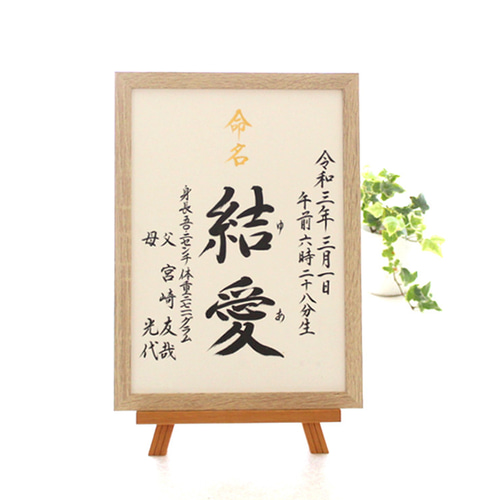 命名
令和三年三月一日
午前六時二十八分生
結愛
ゆ
あ
身長五二センチ 体重三七二一グラム
父 宮崎 友哉
母 光代